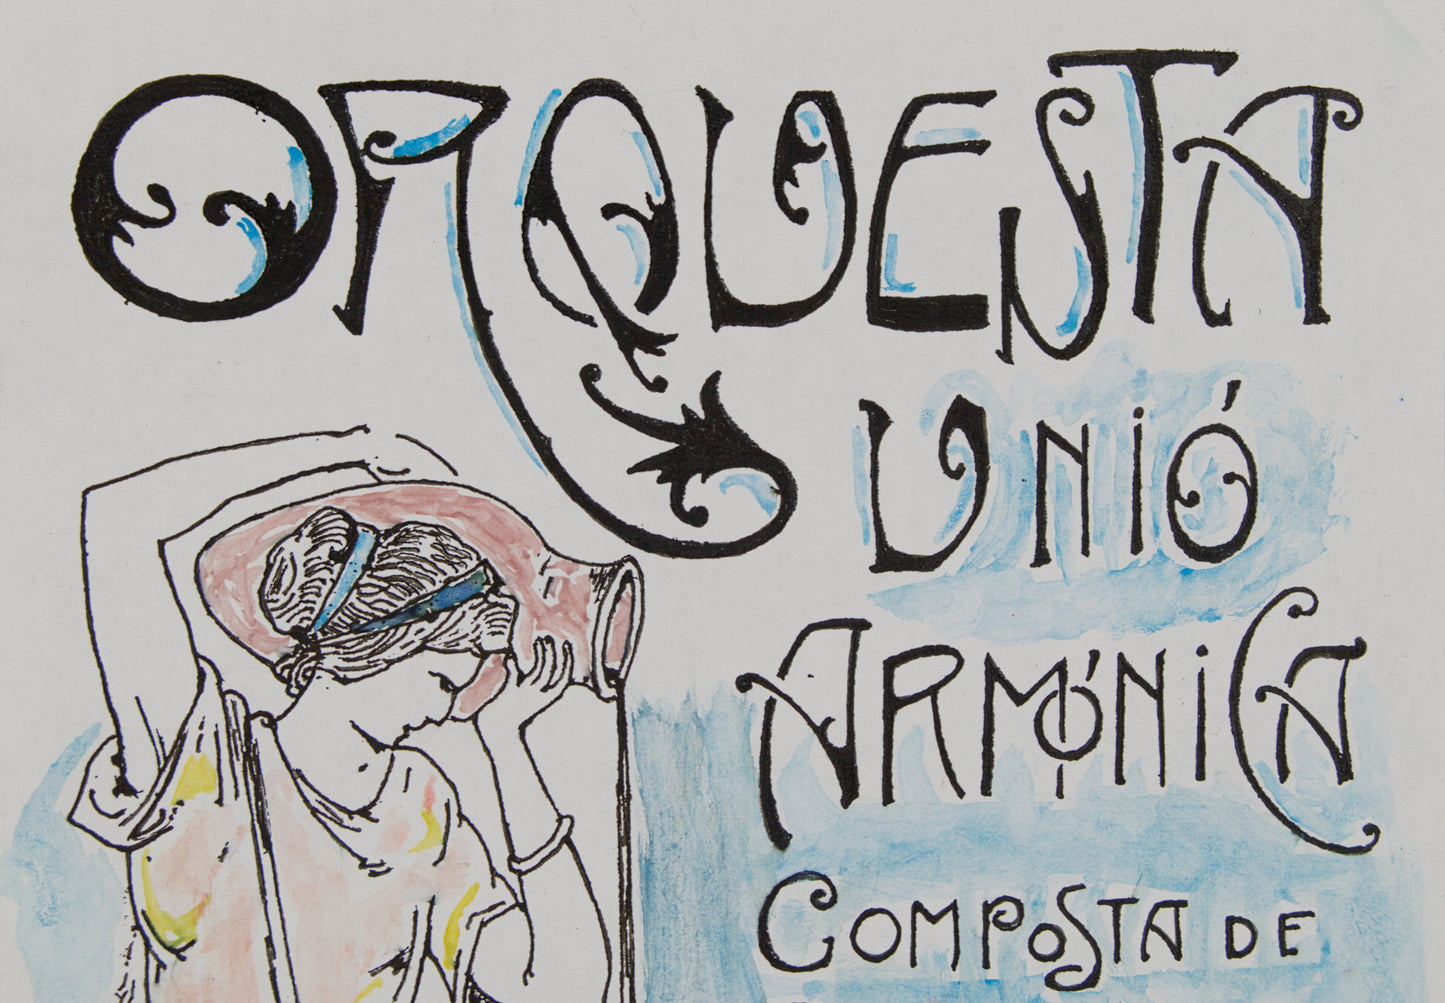 ORQUESTA
UNIÓ
ARMÓNICA
COMPOSTA DE